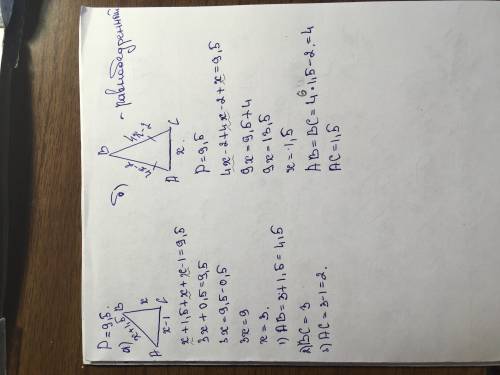 P=9,5.
а)
B
x+1,5
x
A
x-1
C
x+1,5+x+x-1=9,5
3x+0,5=9,5
3x=9,5-0,5
3x=9
x=3.
1) AB=3+1,5=4,5
2) BC=3
3) AC=3-1=2.
б)
- равнобедренный
B
4x-2
4x-2
A
x
C
P=9,5
4x-2+4x-2+x=9,5
9x=9,5+4
9x=13,5
x=1,5
6
AB=BC=4·1,5-2=4
AC=1,5